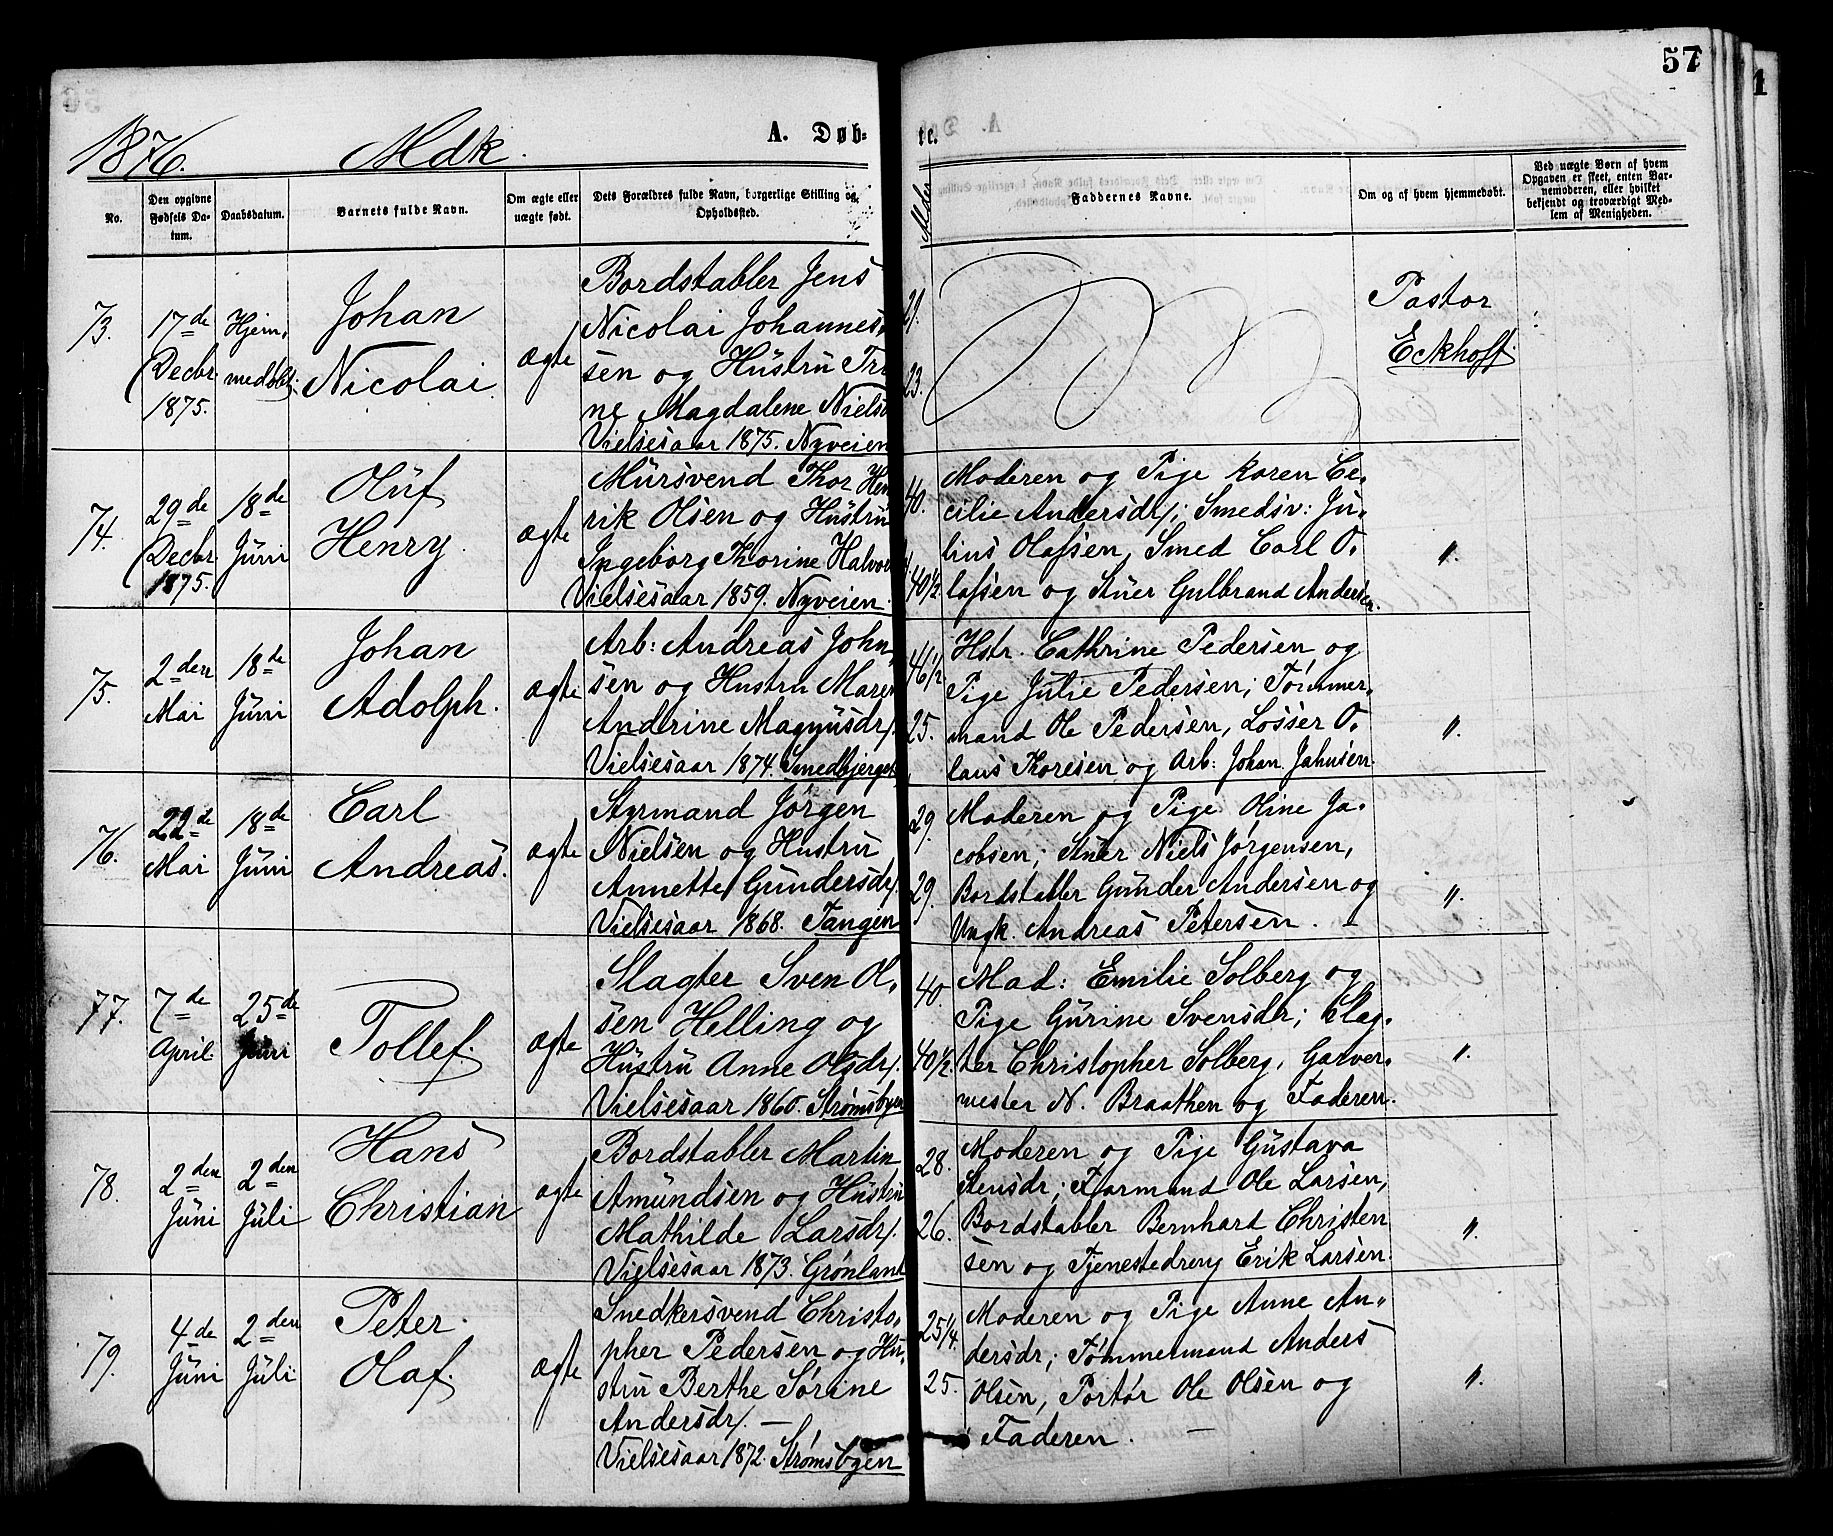 57
1876.
Mdk.
A. Døb-
te.
No.
Den opgivne Fødsels Da-tum.
Daabsdatum.
Barnets fulde Navn.
Om ægte eller uægte født.
Dets Forældres fulde Navn, borgerlige Stilling og Opholdssted.
Alder
Faddernes Navne.
Om og af hvem hjemmedøbt.
Ved uægte Børn af hvem Opgaven er skeet, enten Bar-nemoderen, eller hvilket bekjendt og troværdigt Med-lem af Menigheden.
73.
17de
Decbr
1875.
Hjem,
medøbt.
Johan
Nicolai.
ægte
Bordstabler Jens
Nicolai Johannes,
sen og Hustru Tri
ne Magdalene Niels
Vielsesaar 1875. Nyveien
21.
23.
Pastor
Eckhoff.
74.
29de
Decbr
1875.
18de
Juni
Oluf
Henry.
ægte
Mursvend Thor Hen
rik Olsen og Hustru
Ingeborg Thorine Halvor
Vielsesaar 1859. Nyveien.
40.
40½
Moderen og Pige Karen Ce,
cilie Andersdr; Smedsv: Ju,
lius Olafsen, Smed Carl O,
lafsen og Stuer Gulbrand Andersen.
"
75.
2den
Mai
18de
Juni
Johan
Adolph.
ægte
Arb: Andreas John,
sen og Hustru Maren
Andrine Magnusdr.
Vielsesaar 1874. Smedbjerget
46½
25.
Hstr. Cathrine Pedersen og
Pige Julie Pedersen; Tømmer,
mand Ole Pedersen, Losser O,
laus Thoresen og Arb: Johan Jahnsen.
"
76.
22de
Mai
18de
Juni
Carl
Andreas.
ægte
Styrmand Jørgen
Nielsen og Hustru
Annette Gundersdr.
Vielsesaar 1868. Tangen
29.
29.
Moderen og Pige Oline Ja,
cobsen; Stuer Niels Jørgensen,
Bordstabler Gunder Andersen og
Ungk. Andreas Petersen.
"
77.
7de
April
25de
Juni
Tollef.
ægte
Slagter Sven Ol,
sen Helling og
Hustru Anne Olsdr.
Vielsesaar 1860. Strømsbyen
40.
40½.
Mad: Emilie Solberg og
Pige Gurine Svensdr; Slag,
ter Christopher Solberg, Garver,
mester N. Braathen og Faderen.
"
78.
2den
Juni
2den
Juli
Hans
Christian
ægte
Bordstabler Martin
Amundsen og Hustru
Mathilde Larsdr.
Vielsesaar 1873. Grønland
28.
26.
Moderen og Pige Gustava
Stensdr; Formand Ole Larsen,
Bordstabler Bernhard Christen
sen og Tjenestedreng Erik Larsen.
"
79.
4de
Juni
2den
Juli
Peter.
Olaf.
ægte
Snedkersvend Christo,
pher Pedersen og Hu,
stru Berthe Sørine
Andersdr. —
Vielsesaar 1872. Strømsbyen
25¼.
25.
Moderen og Pige Anne An,
dersdr; Tømmermand Anders
Olsen, Portør Ole Olsen og
Faderen.
"